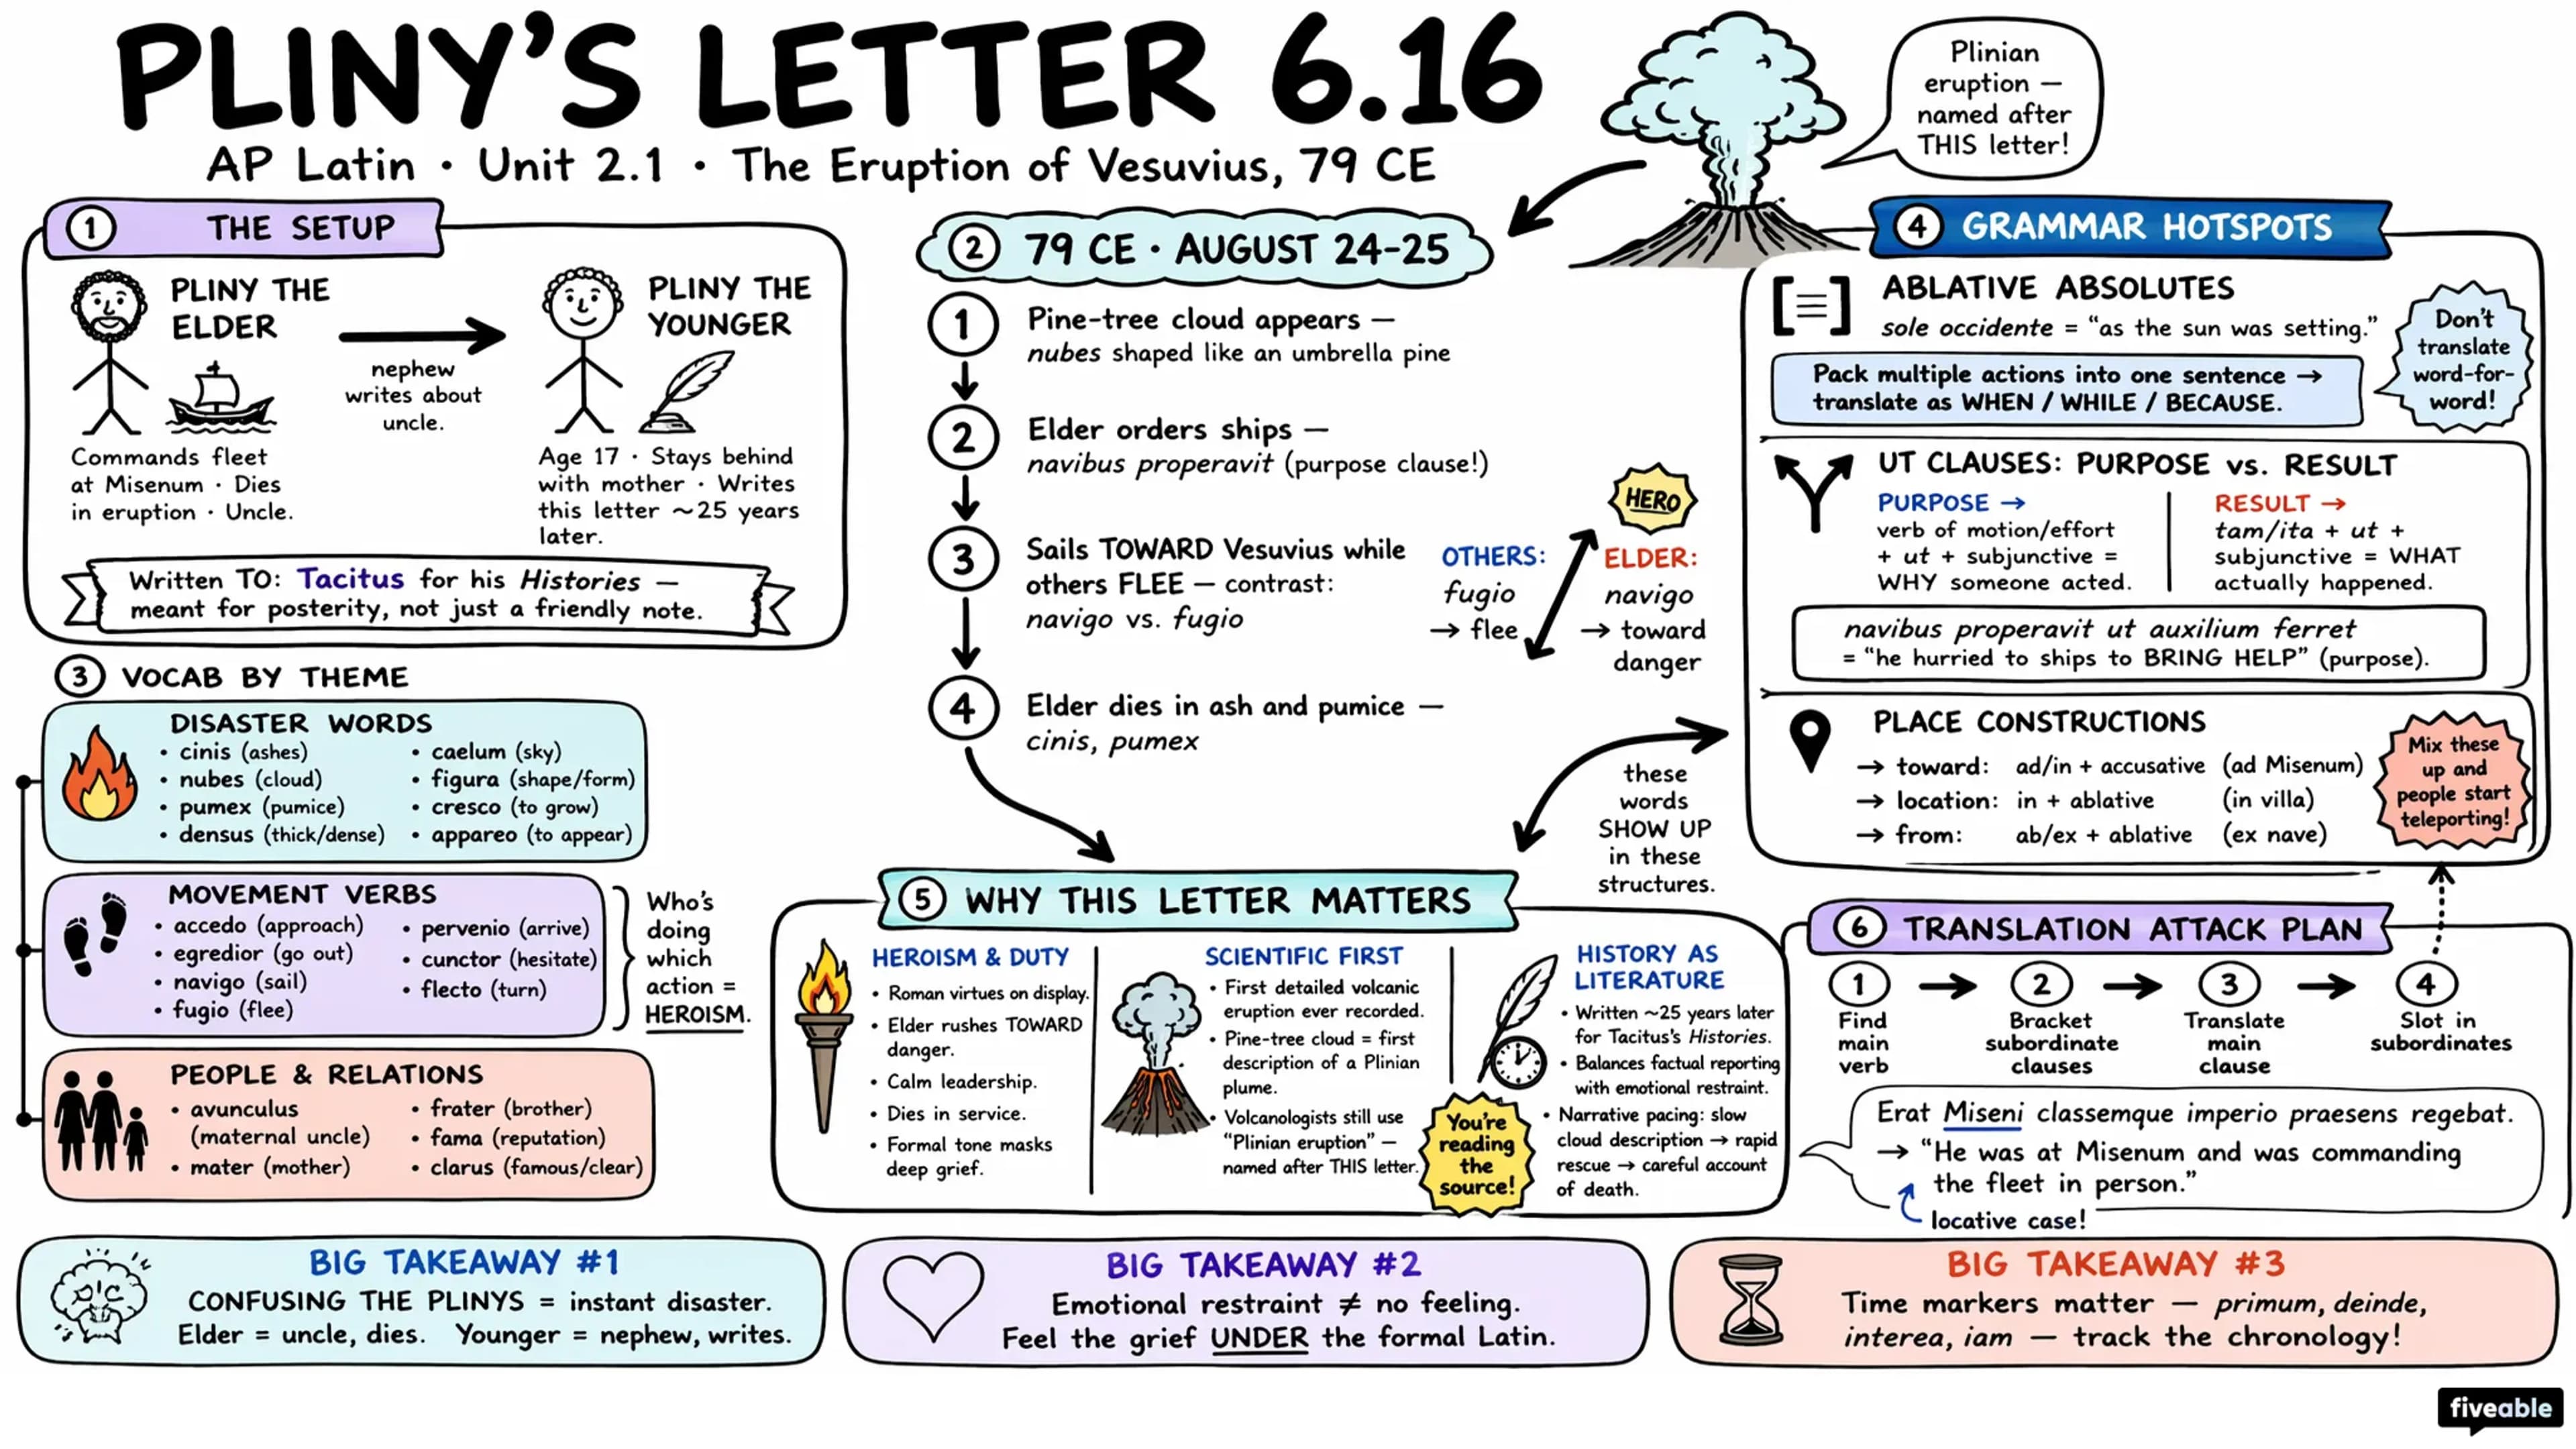 PLINY'S LETTER 6.16
AP Latin · Unit 2.1 · The Eruption of Vesuvius, 79 CE
Plinian
eruption —
named after
THIS letter!
1 THE SETUP
PLINY THE
ELDER
nephew
writes about
uncle.
PLINY THE
YOUNGER
Commands fleet
at Misenum · Dies
in eruption · Uncle.
Age 17 · Stays behind
with mother · Writes
this letter ~25 years
later.
Written TO: Tacitus for his Histories —
meant for posterity, not just a friendly note.
2 79 CE · AUGUST 24-25
1
Pine-tree cloud appears —
nubes shaped like an umbrella pine
2
Elder orders ships —
navibus properavit (purpose clause!)
3
Sails TOWARD Vesuvius while
others FLEE — contrast:
navigo vs. fugio
HERO
OTHERS:
fugio
→ flee
ELDER:
navigo
→ toward
danger
4
Elder dies in ash and pumice —
cinis, pumex
3 VOCAB BY THEME
DISASTER WORDS
• cinis (ashes)
• nubes (cloud)
• pumex (pumice)
• densus (thick/dense)
• caelum (sky)
• figura (shape/form)
• cresco (to grow)
• appareo (to appear)
MOVEMENT VERBS
• accedo (approach)
• egredior (go out)
• navigo (sail)
• fugio (flee)
• pervenio (arrive)
• cunctor (hesitate)
• flecto (turn)
Who's
doing
which
action =
HEROISM.
PEOPLE & RELATIONS
• avunculus
(maternal uncle)
• mater (mother)
• frater (brother)
• fama (reputation)
• clarus (famous/clear)
4 GRAMMAR HOTSPOTS
ABLATIVE ABSOLUTES
sole occidente = "as the sun was setting."
Pack multiple actions into one sentence →
translate as WHEN / WHILE / BECAUSE.
Don't
translate
word-for-
word!
UT CLAUSES: PURPOSE vs. RESULT
PURPOSE →
verb of motion/effort
+ ut + subjunctive =
WHY someone acted.
RESULT →
tam/ita + ut +
subjunctive = WHAT
actually happened.
navibus properavit ut auxilium ferret
= "he hurried to ships to BRING HELP" (purpose).
PLACE CONSTRUCTIONS
→ toward: ad/in + accusative (ad Misenum)
→ location: in + ablative (in villa)
→ from: ab/ex + ablative (ex nave)
Mix these
up and
people start
teleporting!
these
words
SHOW UP
in these
structures.
5 WHY THIS LETTER MATTERS
HEROISM & DUTY
• Roman virtues on display.
• Elder rushes TOWARD
danger.
• Calm leadership.
• Dies in service.
• Formal tone masks
deep grief.
SCIENTIFIC FIRST
• First detailed volcanic
eruption ever recorded.
• Pine-tree cloud = first
description of a Plinian
plume.
• Volcanologists still use
"Plinian eruption" —
named after THIS letter.
HISTORY AS
LITERATURE
• Written ~25 years later
for Tacitus's Histories.
• Balances factual reporting
with emotional restraint.
• Narrative pacing: slow
cloud description → rapid
rescue → careful account
of death.
You're
reading
the
source!
6 TRANSLATION ATTACK PLAN
1
Find
main
verb
2
Bracket
subordinate
clauses
3
Translate
main
clause
4
Slot in
subordinates
Erat Miseni classemque imperio praesens regebat.
→ "He was at Misenum and was commanding
the fleet in person."
locative case!
BIG TAKEAWAY #1
CONFUSING THE PLINYS = instant disaster.
Elder = uncle, dies. Younger = nephew, writes.
BIG TAKEAWAY #2
Emotional restraint ≠ no feeling.
Feel the grief UNDER the formal Latin.
BIG TAKEAWAY #3
Time markers matter — primum, deinde,
interea, iam — track the chronology!
fiveable